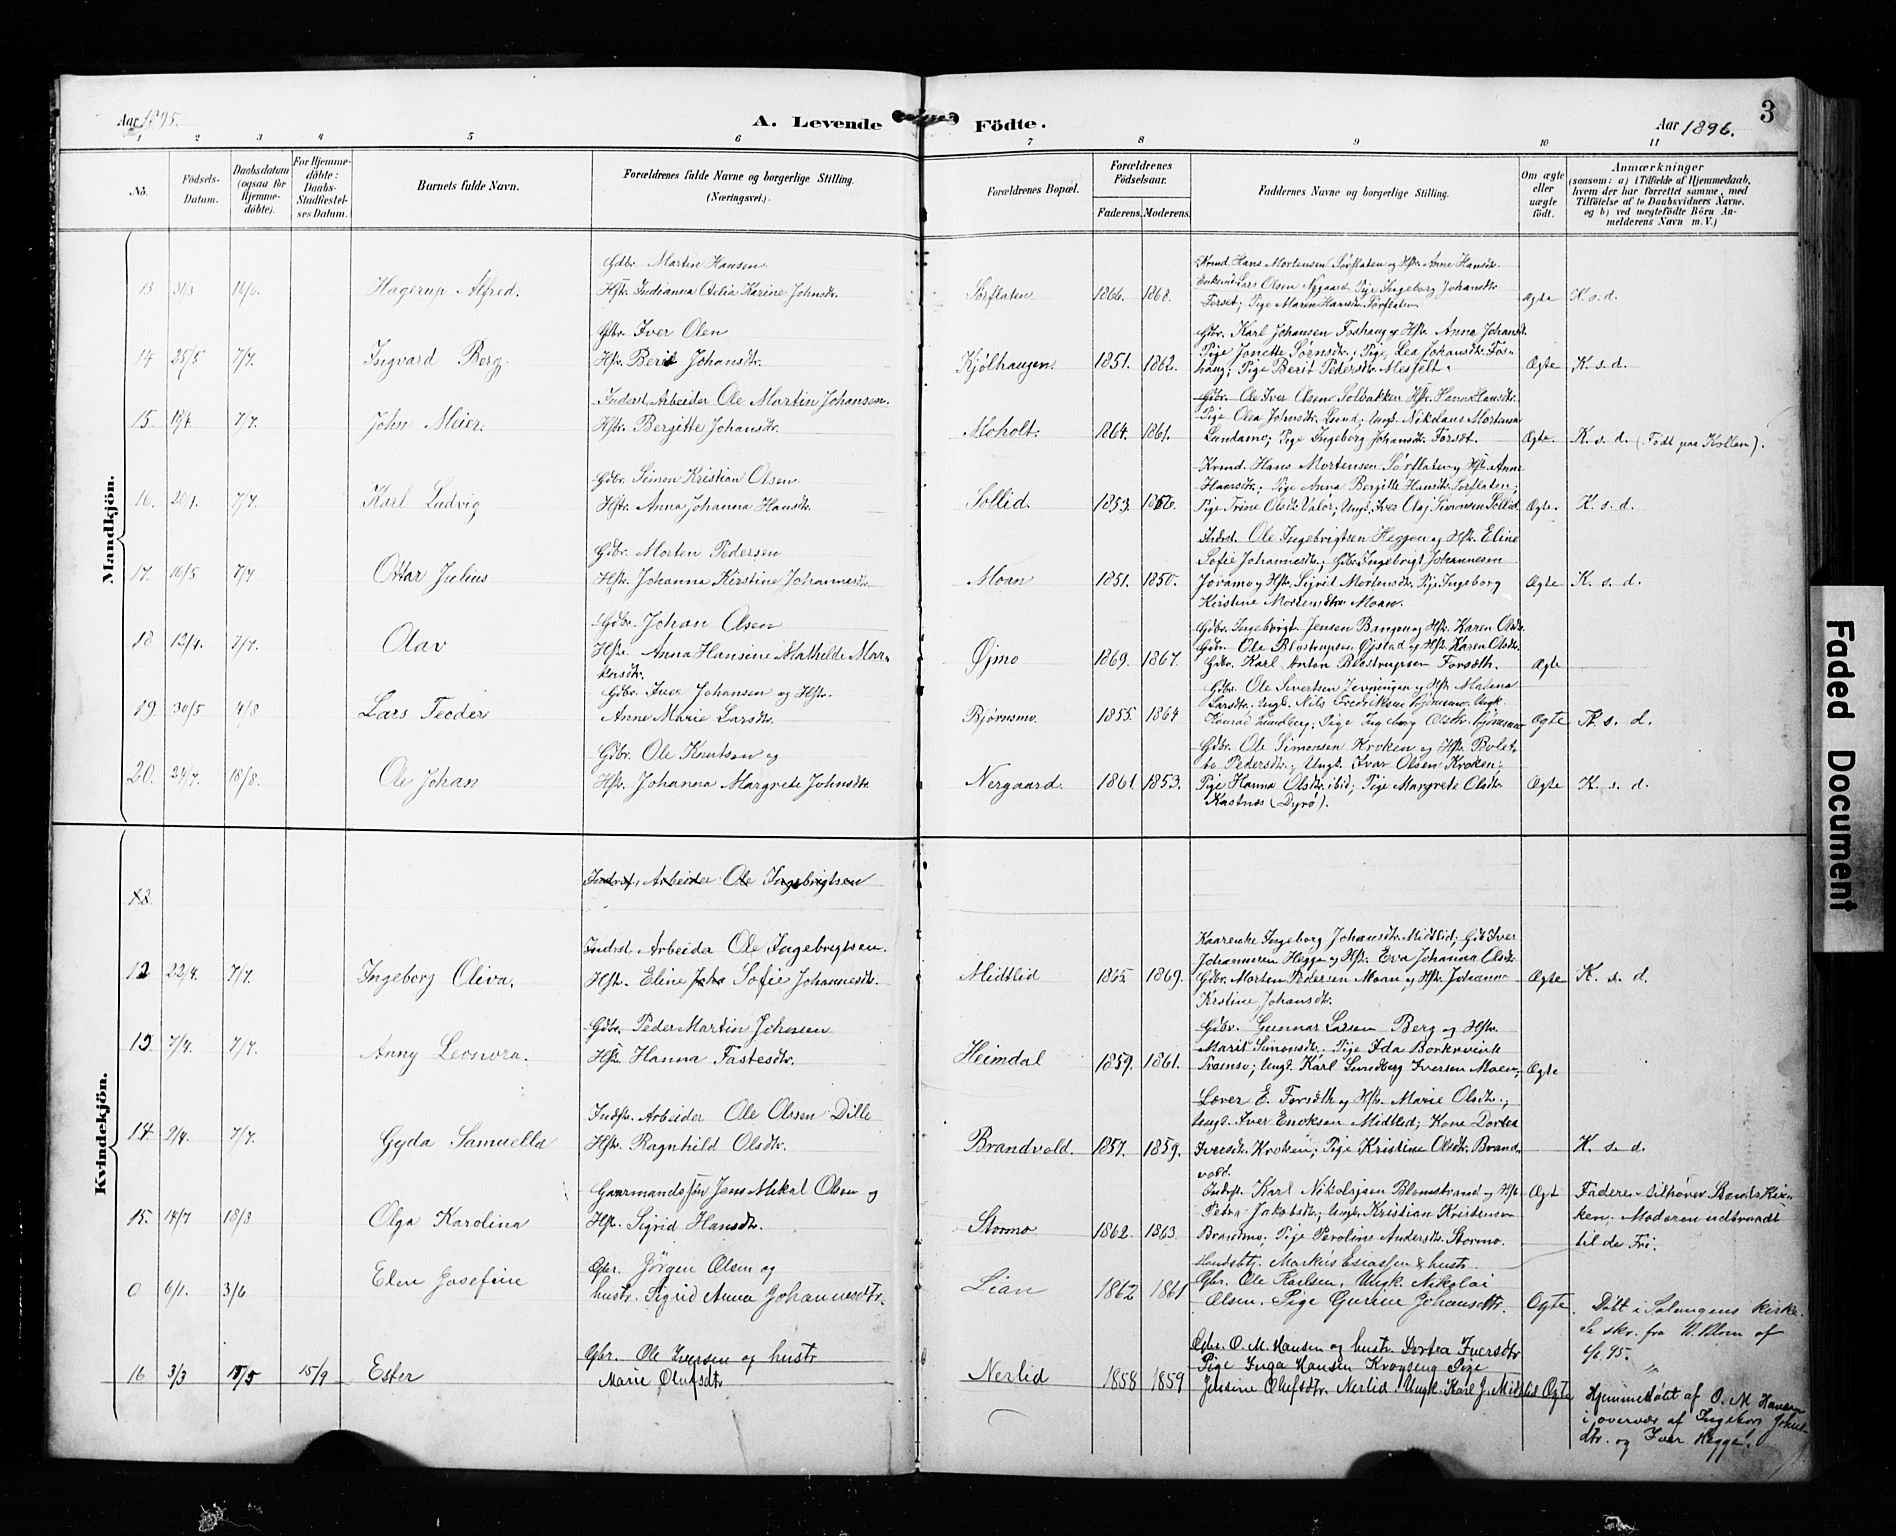 Aar 1895.
A. Levende Födte.
Aar 1896.
3
1 2 3 4 5 6 7 8 9 10 11
No.
Födsels-Datum.
Daabsdatum (ogsaa for Hjemme-döbte).
For Hjemme-döbte: Daabs-Stadfæstel-ses Datum.
Barnets fulde Navn.
Forældrenes fulde Navne og borgerlige Stilling. (Næringsvei.)
Forældrenes Bopæl.
Forældrenes Födselsaar.
Faderens. Moderens.
Faddernes Navne og borgerlige Stilling.
Om ægte eller uægte födt.
Anmærkninger
(saasom: a) i Tilfælde af Hjemmedaab,
hvem der har forrettet samme, med
Tilföielse af to Daabsvidners Navne.
og b) ved uægtefödte Börn An-
melderens Navn m. V.)
Mandkjön.
Gdbr. Martin Hansen
13 31/3 16/6. Hagerup Alfred. Hstr. Indianna Otelia Karine Johnsdtr. Sørflaten 1866. 1868.
Kvmd. Hans Mortensen Sørflaten og Hstr. Anne Hansdtr.
Enkemd. Lars Olsen Nygaard. Pige Ingeborg Johansdtr.
Forset; Pige Maren Hansdtr. Sørflaten
Ægte K. s. d.
Gdbr. Iver Olen
14 25/5 7/7. Ingvard Berg. Hstr. Berit Johansdtr. Kjølhaugen. 1851. 1862.
Gdbr. Karl Johansen Foshaug og Hstr. Anna Johansdt.
Pige Jonette Sørnsdtr.; Pige Lea Johansdtr. Fos-
haug; Pige Berit Pedersdtr. Mesfelt.
Ægte K. s. d.
Inderst, Arbeider Ole Martin Johansen.
15. 19/4. 7/7. John Meier. Hstr. Bergitte Johansdtr. Moholt. 1864. 1861.
Gdbr. Ole Iver Olsen Solbakken Hstr. Hanna Hansdtr.
Pige Olea Johnsdtr. Lund; Ungk. Nikolaus Mortensen
Lundamo; Pige Ingeborg Johansdtr. Forset.
Ægte. K. s. d. (Født paa Kollen).
Gdbr. Simon Kristian Olsen
16. 20/1. 7/7. Karl Ludvig Hstr. Anna Johanna Hansdtr. Sollid. 1853. 1856.
Kvmd. Hans Mortensen Sørflaten og Hstr. Anne
Hansdtr.; Pige Anna Bergitte Hansdtr. Sørflaten;
Pige Trine Olsdtr. Valør; Ungk. Iver Olaj Simonsen Sollid.
Ægte. K. s. d.
Gdbr. Morten Pedersen
17. 16/5 7/7 Ottar Julius Hstr. Johanna Kirstine Johannesdtr. Moan 1851. 1850.
Inderst. Ole Ingebrigtsen Heggen og Hstr. Eline
Sofie Johannesdtr.; Gdbr. Ingebrigt Johannesen
Joramo og Hstr. Sigrid Mortensdtr. Pige Ingeborg
Kirstine Mortensdtr. Moan.
Ægte K. s. d.
Gdbr. Johan Olsen
18 12/4. 7/7. Olav Hstr. Anna Hansine Mathilde Mar-
kusdtr. Øjmo 1869. 1867.
Gdbr. Ingebrigt Jensen Bangen og Hstr. Karen Olsdtr.
Gdbr. Ole Blostrupsen Øjstad og Hstr. Karen Olsdtr.
Gdbr. Karl Anton Blostrupsen Forseth.
Ægte
Gdbr. Iver Johansen og Hstr.
19. 30/5 4/8 Lars Teoder Anne Marie Larsdtr. Bjørnsmo. 1855. 1864
Gdbr. Ole Sivertsen Jevningen og Hstr. Malena
Larsdtr. Ungk. Nils Fredriksen Bjørnsmo. Ungk.
Konrad Lundberg; Pige Ingeborg Olsdtr. Bjørnsmo
Ægte K. s. d.
Gdbr. Ole Knutsen og
20. 27/7. 18/8. Ole Johan Hstr. Johanna Margrete Johnsdtr. Nergaard. 1861. 1853.
Gdbr. Ole Simonsen Kroken og Hstr. Bolet-
te Pedersdtr.; Ungk. Ivar Olsen Kroken;
Pige Hanna Olsdtr. ibid; Pige Margrete Olsdtr.
Kastnæs (Dyrø).
Ægte K. s. d.
Kvindekjön.
12. Inderst, Arbeider Ole Ingebrigtsen
Inderst. Arbeider Ole Ingebrigtsen.
12 22/4. 7/7. Ingeborg Oliva. Hstr. Eline Joha Sofie Johannesdtr. Midtlid 1865 1869.
Kaarenke Ingeborg Johansdtr. Midtlid; Gdb Iver
Johannesen Hegge og Hstr. Eva Johanna Olsdtr.
Gdbr. Morten Pedersen Moan og Hstr. Johanna
Kristine Johansdtr.
Ægte K. s. d.
Gdbr. Peder Martin Johnsen
13. 7/4. 7/7. Anny Leonora. Hstr. Hanna Fastesdtr. Heimdal 1859. 1861.
Gdbr. Gunnar Larsen Berg og Hstr.
Marit Simonsdtr.; Pige Ida Borkrevik
Tromsø; Ungk. Karl Lundberg Iversen Moen;
Ægte
Indst. Arbeider Ole Olssen Dille
14. 2/4. 7/7. Gyda Samuella Hstr. Ragnhild Olsdtr. Brandvold. 1857. 1859.
Lærer E. Forseth og Hstr. Marie Olsdtr.;
Ungk. Iver Enoksen Midtlid; Kone Dortea
Iversdtr. Kroken; Pige Kristine Olsdtr. Brand-
vold.
K. s. d.
Gaarmandssøn Jens Mikal Olsen og
15. 14/7 18/8 Olga Karolina Hstr. Sigrid Hansdtr. Stormo 1862. 1863.
Indst. Karl Nikolajsen Blomstrand og Hstr
Petra Jakobsdtr.; Ungk. Kristian Kristensen
Brandmo; Pige Peroline Andersdtr. Stormo.
Ægt Faderen tilhører Bards Kir-
ken. Moderen udtraadt
til de Fri.
Gbr. Jörgen Olsen og
0 6/1. 3/6 Elen Josefine hustr. Sigrid Anna Johannesdtr. Lian 1862 1861
Handelsbtj. Markus Esiassen & hustr.
Gbr. Ole Karlsen, Ungk. Nikolai
Olsen. Pige Gurine Johansdtr.
Ogte Döbt i Salangens kirke.
Se skr. fra V. Blom af
6/6 95.
Gbr. Ole Iversen og hustr
16 3/3 15/5 15/9 Ester Marie Olufsdtr Nerlid 1858 1859
Gbr. O. M. Hansen og hustr. Dortea Iversdtr
Pige Inga Hansen Krongseng Pige
Jensine Olufsdtr. Nerlid. Ungk. Karl J. Midtlid
Ogte Hjemmedöbt af O. M. Hansen
i overvær af Ingeborg Johns-
dtr. og Iver Hegge.
Faded Document